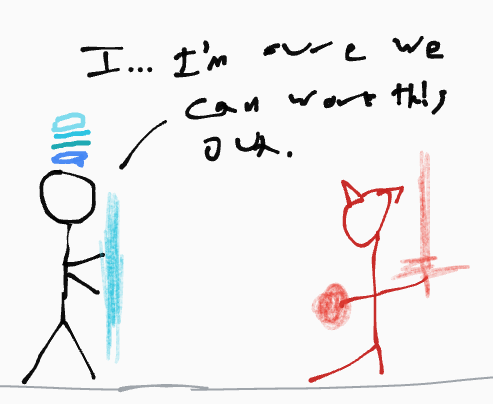 I... I'm sure we
can work this
out.